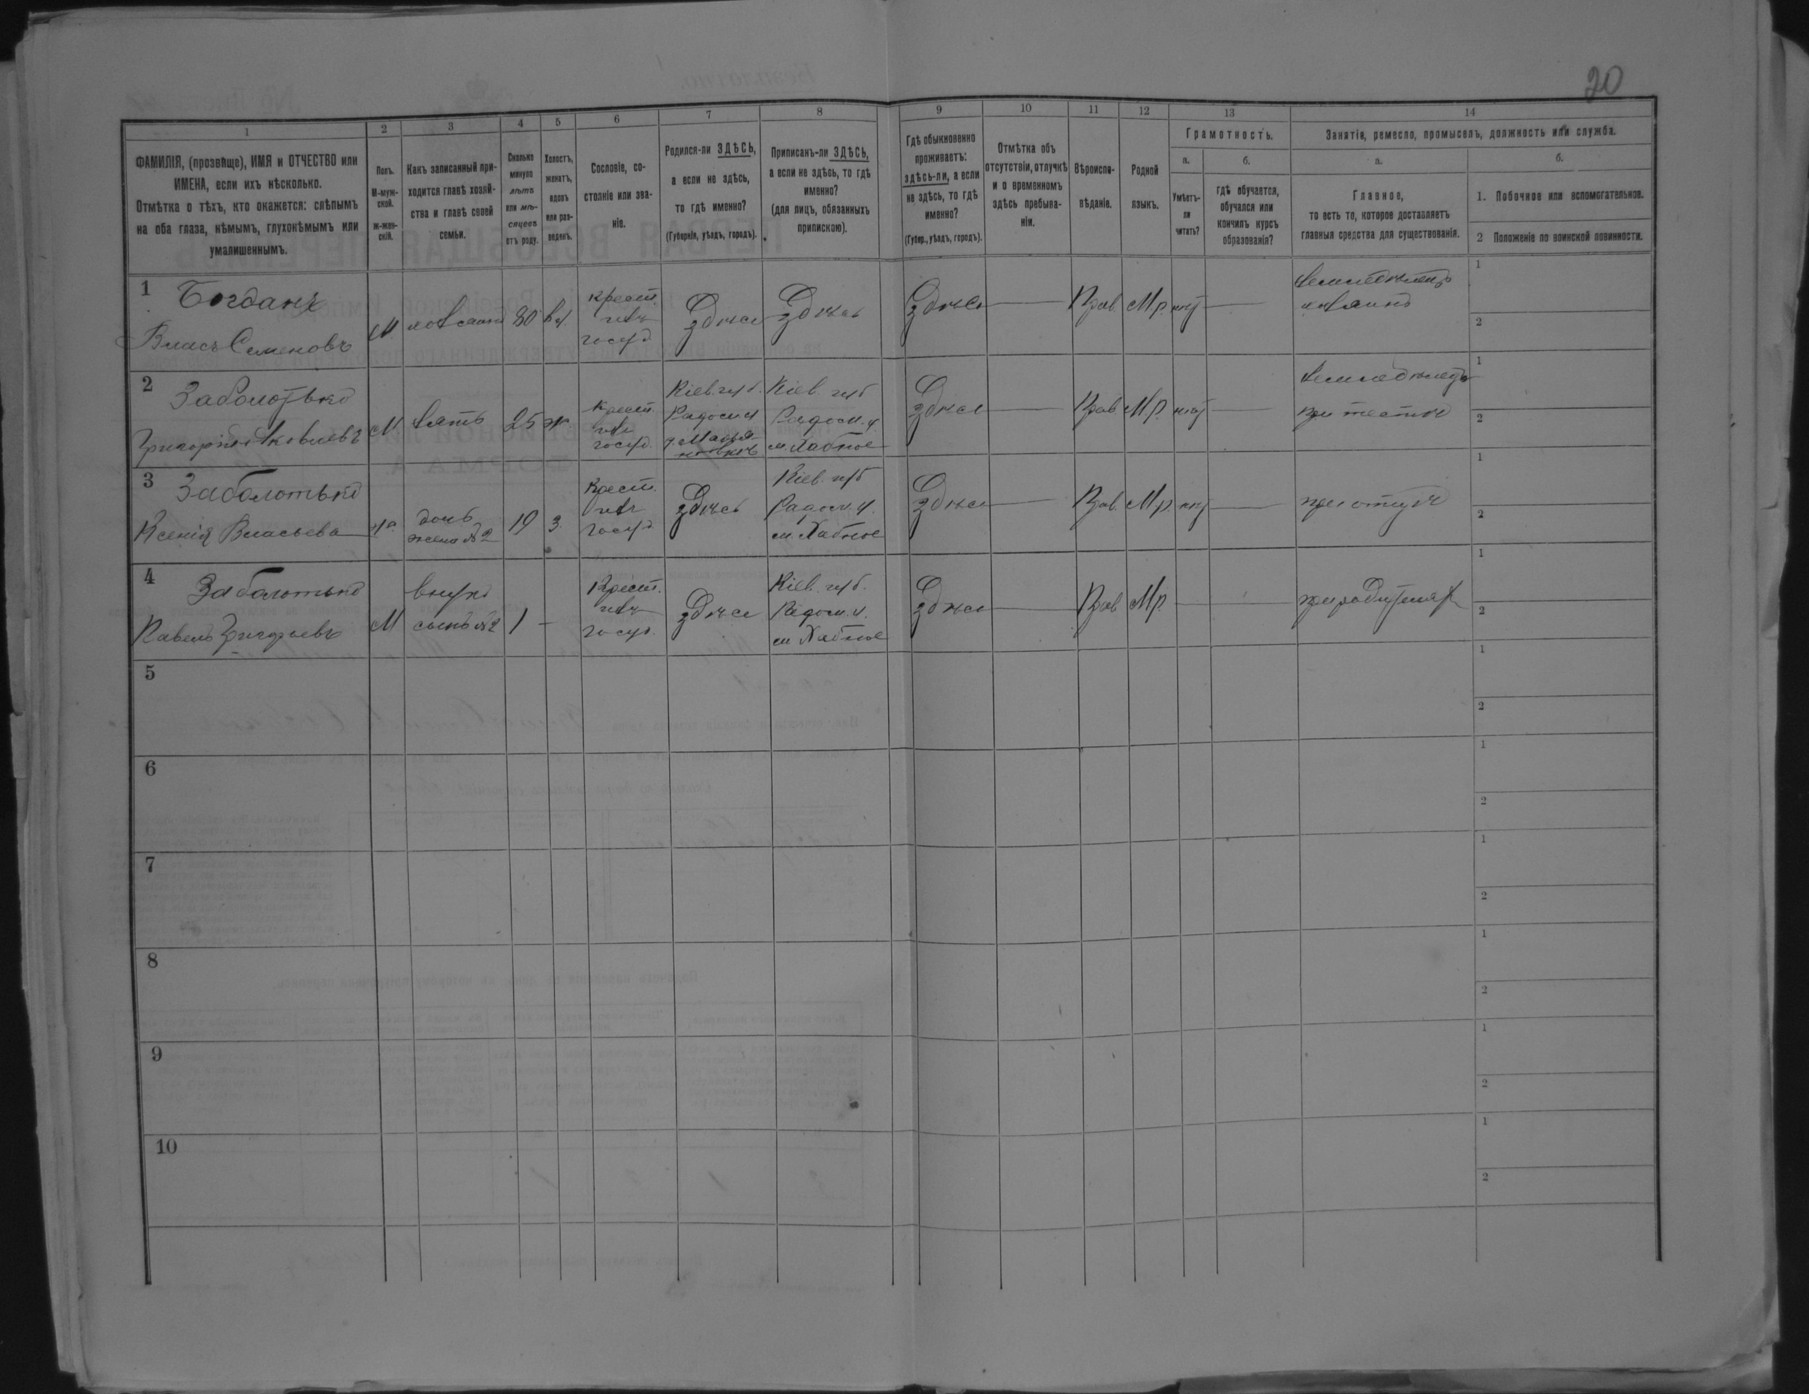 20
1 2 3 4 5 6 7 8 9 10 11 12 13 14
ФАМИЛІЯ, (прозвище), ИМЯ и ОТЧЕСТВО или
ИМЕНА, если ихъ нѣсколько.
Отмѣтка о тѣхъ, кто окажется: слѣпымъ
на оба глаза, нѣмымъ, глухонѣмымъ или
умалишеннымъ.
Полъ.
М-муж-
ской.
Ж-жен-
скій.
Какъ записанный при-
ходится главѣ хозяй-
ства и главѣ своей
семьи.
Сколько
минуло
лѣтъ
или мѣ-
сяцевъ
отъ роду.
Холостъ,
женатъ,
вдовъ
или раз-
веденъ.
Сословіе, со-
стояніе или зва-
ніе.
Родился-ли ЗДѢСЬ,
а если не здѣсь,
то гдѣ именно?
(Губернія, уѣздъ, городъ).
Приписанъ-ли ЗДѢСЬ,
а если не здѣсь, то гдѣ
именно?
(для лицъ, обязанныхъ
припискою).
Гдѣ обыкновенно
проживаетъ:
здѣсь-ли, а если
не здѣсь, то гдѣ
именно?
(Губер., уѣздъ, городъ).
Отмѣтка объ
отсутствіи, отлучкѣ
и о временномъ
здѣсь пребыва-
ніи.
Вѣроиспо-
вѣданіе.
Родной
языкъ.
Грамотность.
а.
Умѣетъ-
ли
читать?
б.
гдѣ обучается,
обучался или
кончилъ курсъ
образованія?
Занятіе, ремесло, промыселъ, должность или служба.
а.
Главное,
то есть то, которое доставляетъ
главныя средства для существованія.
б.
1. Побочное или вспомогательное.
2 Положеніе по воинской повинности.
1 Богданъ
Власъ Семеновъ
М хозяинъ 80 вд.
крест.
изъ
госуд
Здѣсь Здѣсь Здѣсь — Прав Мр нѣт —
земледѣлецъ
хозяинъ
1
2
2 Заболотько
Григорій Яковлевъ
М зять 25 ж
крест.
изъ
госуд.
Кіев. губ.
Радом. у
Кіев губ
Радом. у.
м. Хабное
Здѣсь — Прав Мр. нѣт —
земледѣлецъ
при тестѣ
1
2
3 Заболотько
Ксенія Власьева
ж
дочь
жена № 2
19 з.
Крест.
изъ
госуд
Здѣсь
Кіев. губ
Радом. у.
м. Хабное
Здѣсь — Прав Мр нѣт —
при отцѣ
1
2
4 Заболотько
Павелъ Григорьевъ
М
внукъ
сынъ № 2
1 —
Крест.
изъ
госуд.
Здѣсь
Кіев. губ.
Радом. у.
м Хабное
Здѣсь — Прав Мр — —
при родителях
1
2
5
1
2
6
1
2
7
1
2
8
1
2
9
1
2
10
1
2